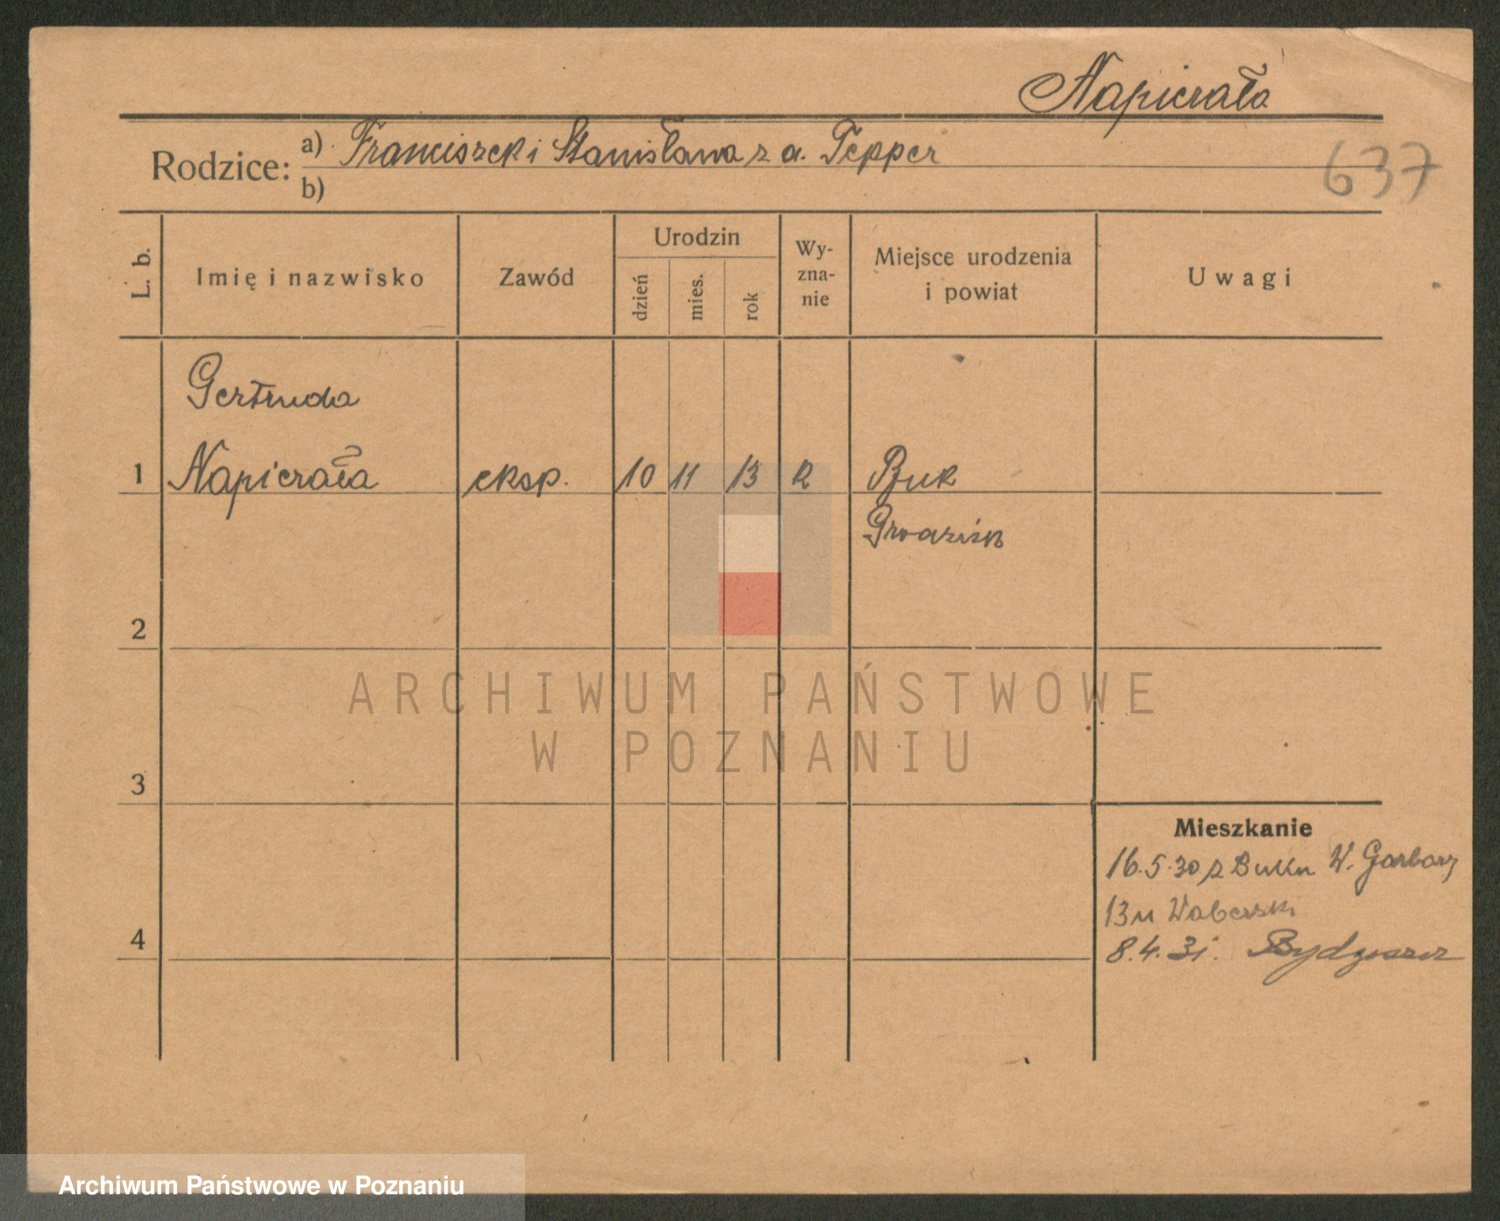 Napierała
Rodzice: a) Franciszek i Stanisława z d. Tepper
b)
637
L. b.
Imię i nazwisko
Zawód
Urodzin
dzień
mies.
rok
Wy-
zna-
nie
Miejsce urodzenia
i powiat
Uwagi
Gertruda
1 Napierała eksp. 10 11 13 R Buk
Grodzisk
2
ARCHIWUM PAŃSTWOWE
W POZNANIU
3
Mieszkanie
16.5.30 z Buku W. Garbary
13 u Waberski
4
8.4.31. Bydgoszcz
Archiwum Państwowe w Poznaniu